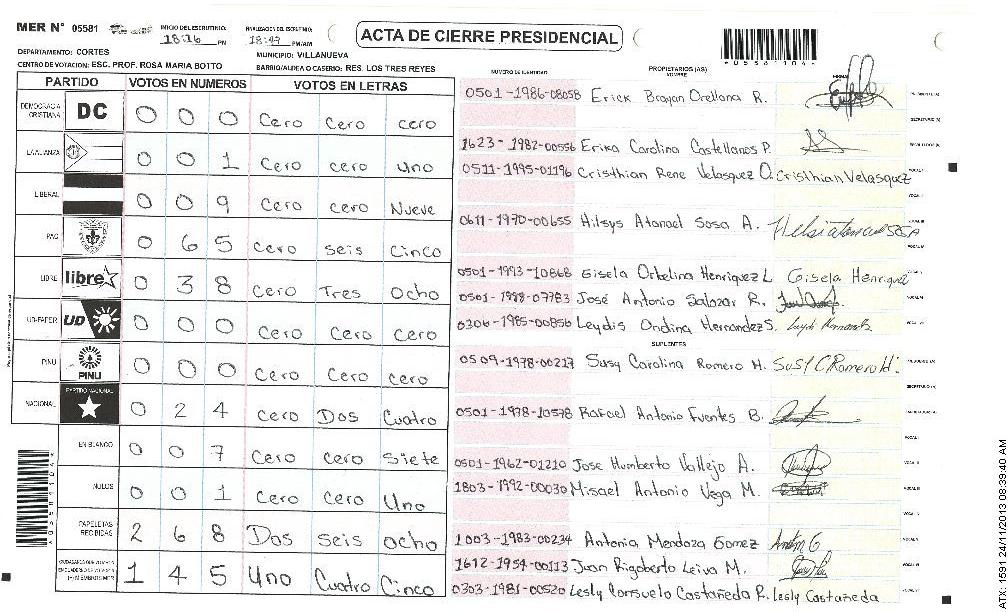 MER N° 05581
INICIO DEL ESCRUTINIO: 18:16 PM
FINALIZACION DEL ESCRUTINIO: 18:47 PM/AM
ACTA DE CIERRE PRESIDENCIAL
*05581104*
DEPARTAMENTO: CORTES
MUNICIPIO: VILLANUEVA
CENTRO DE VOTACION: ESC. PROF. ROSA MARIA BOTTO
BARRIO/ALDEA O CASERIO: RES. LOS TRES REYES
PARTIDO VOTOS EN NUMEROS VOTOS EN LETRAS
DEMOCRACIA CRISTIANA DC 0 0 0 Cero Cero cero
LA ALIANZA 0 0 1 Cero cero uno
LIBERAL 0 0 9 Cero Cero Nueve
PAC 0 6 5 Cero seis Cinco
LIBRE libre 0 3 8 Cero Tres Ocho
UD-FAPER UD 0 0 0 Cero Cero Cero
PINU PINU 0 0 0 Cero Cero cero
NACIONAL PARTIDO NACIONAL 0 2 4 Cero Dos Cuatro
EN BLANCO 0 0 7 Cero cero Siete
NULOS 0 0 1 Cero Cero Uno
PAPELETAS RECIBIDAS 2 6 8 Dos seis ocho
1 4 5 Uno Cuatro Cinco
NUMERO DE IDENTIDAD PROPIETARIOS (AS) NOMBRE FIRMA
0501-1986-08058 Erick Brayan Orellana R.
1623-1982-00556 Erika Carolina Castellanos P.
0511-1995-01196 Cristhian Rene Velasquez O. Cristhian Velasquez
0611-1970-00655 Hilsys Atanael Sosa A.
0501-1993-10868 Gisela Orkelina Henriquez L Gisela Henriquez
0501-1998-07783 José Antonio Salazar R.
0306-1985-00856 Leydis Ondina Hernandez S.
SUPLENTES
0509-1978-00217 Susy Carolina Romero H. Susy C Romero H.
0501-1978-10578 Rafael Antonio Fuentes B.
0501-1962-01210 Jose Humberto Vallejo A.
1803-1992-00030 Misael Antonio Vega M.
1003-1983-00234 Antonia Mendoza Gomez
1612-1954-00113 Juan Rigoberto Leiva M.
0303-1981-00520 Lesly Consuelo Castañeda R. Lesly Castañeda
ATX: 1591 24/11/2013 08:39:40 AM